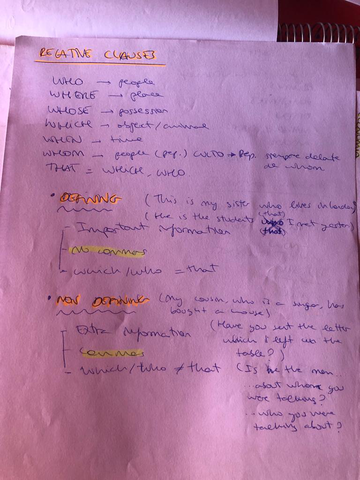 RELATIVE CLAUSES
WHO → people
WHERE → place
WHOSE → possession
WHICH → object/animal
WHEN → time
WHOM → people (Prep.) CULTO → Prep. siempre delante de whom
THAT = WHICH, WHO.
• DEFINING (This is my sister who lives in London)
(that)
(He is the student I met yesterday)
(that)
- Important information
- No commas
- which/who = that
• NON DEFINING (My cousin, who is a singer, has
bought a house)
- Extra information (Have you sent the letter
which I left on the
table?)
- Commas
- Which/who ≠ that (Is he the man
...about whom you
were talking?
...who you were
talking about?